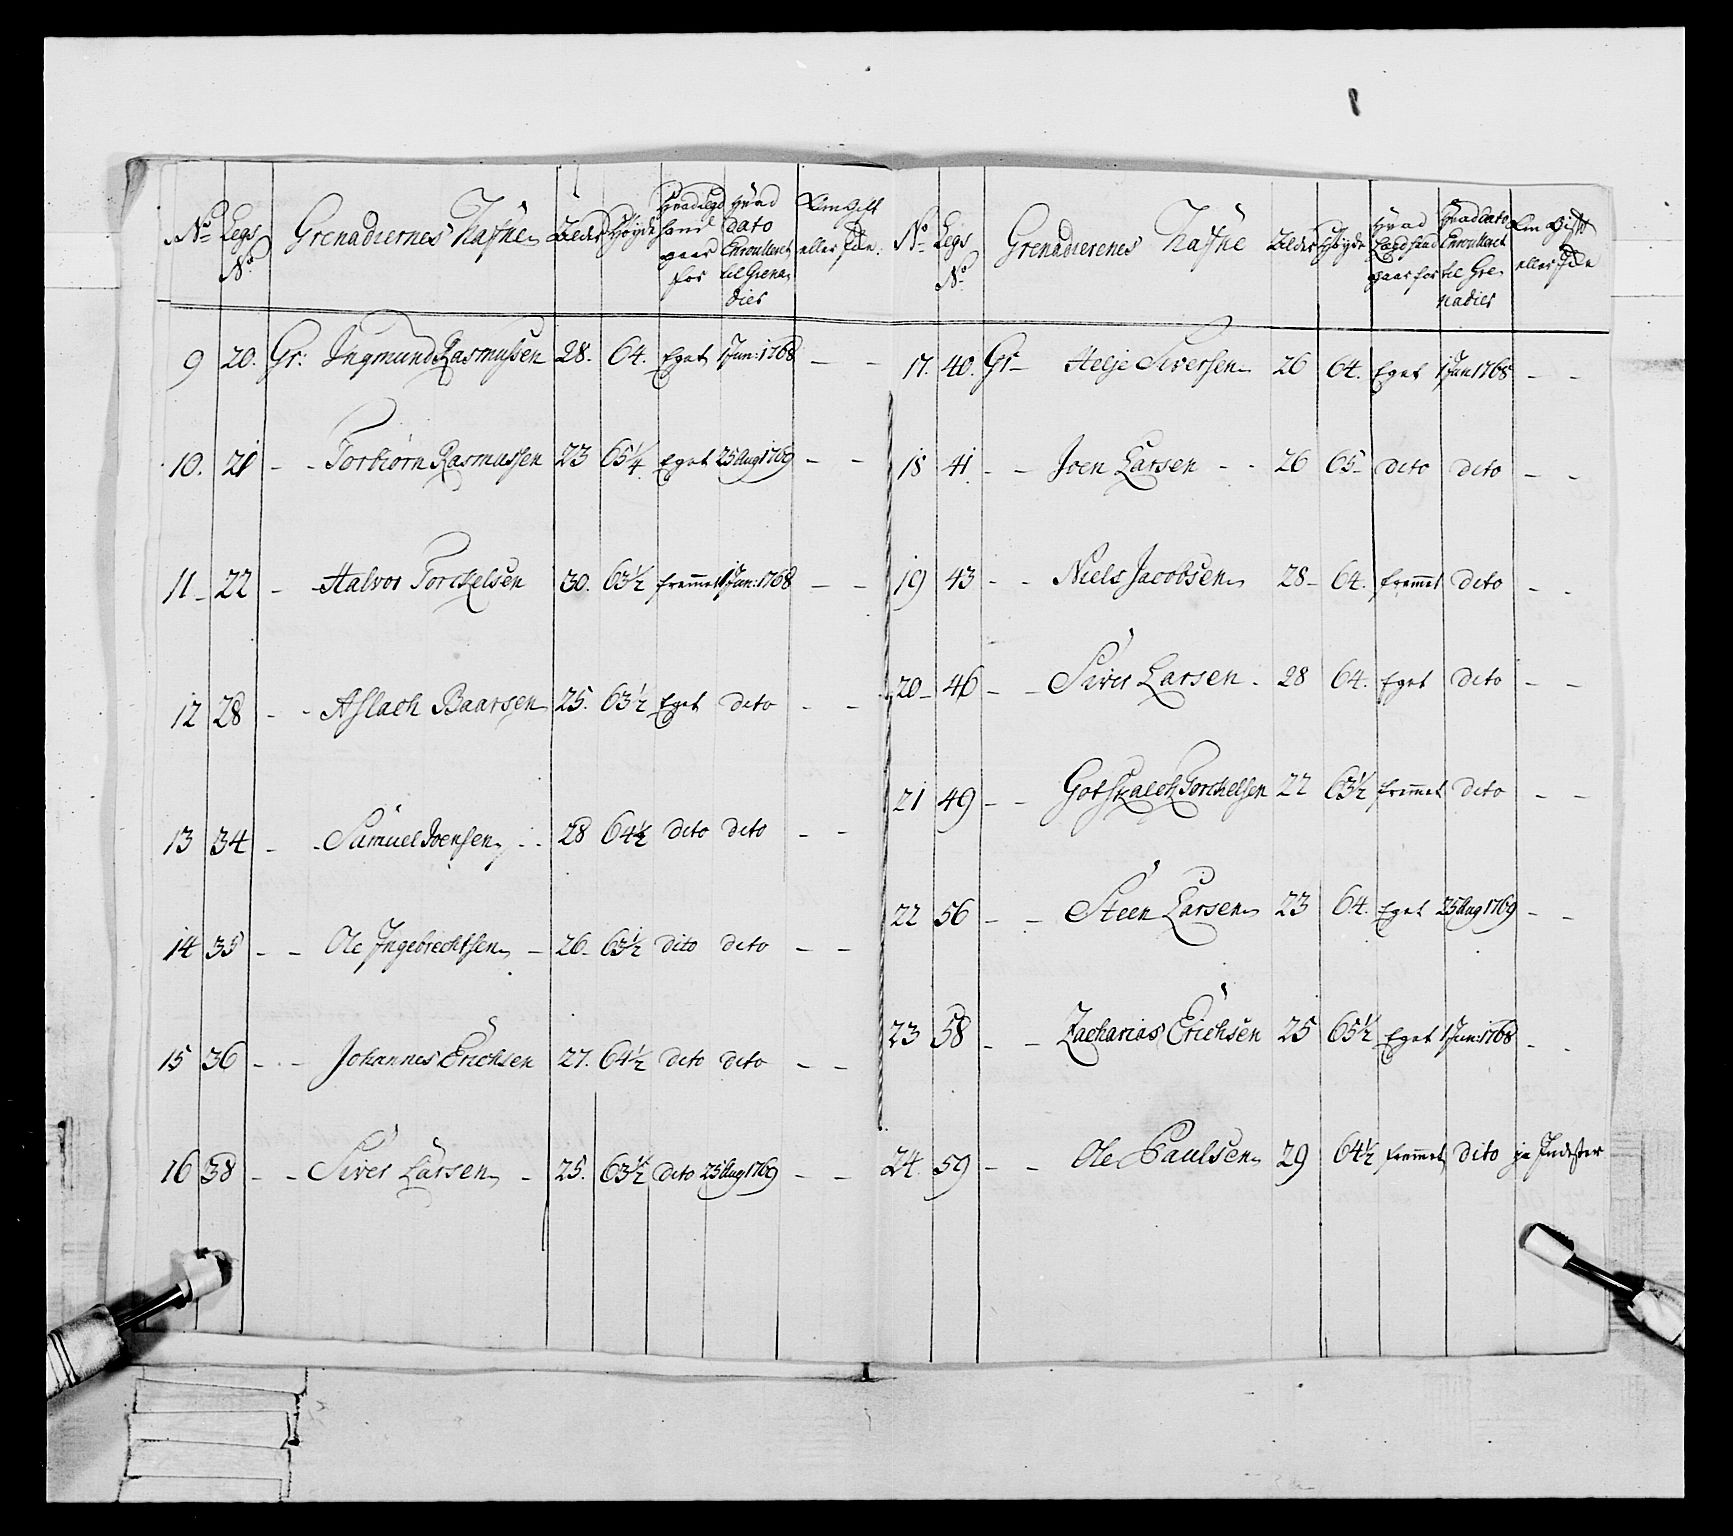 No Legs No Grenadiernes Nafne Alder Høyde Hvad Legd hand gaar for Hvad dato Enroulleret til Grenadier Om Gift eller
9 20. Gr: Ingmund Rasmussen 28. 64. Eget 1 Jun: 1768 — —
10. 21 - - Torbiørn Rasmussen 23 65 1/4 Eget 25 Aug 1769 — —
11 - 22 - - Halvor Torchelsen 30. 63 1/2 fremmet 1 Jan: 1768 — —
12 28 - - Aslach Baarsen 25. 63 1/2 Eget dito - -
13 34 - - Samuel Joensen - - 28 64 1/2 dito dito - -
14 35 - - Ole Ingebrechtsen - 26 - 63 1/2 dito dito - -
15 36 - - Johannes Erichsen 27. 64 1/2 dito dito - -
16 38 - - Siver Larsen - 25. 63 1/2 dito 25 Aug 1769 - -
No Legs No Grenadierenes Nafne Alder Høyde Hvad Legd hand gaar for Hvad dato Enroulleret til Grenadier Om Gift eller
17. 40. Gr - Helje Siversen 26 64. Eget 1 Jun 1768 - -
18 41 - - Joen Larsen - - 26 65 - dito dito - -
19 43 - - Niels Jacobsen 28 - 64. fremmet dito - -
20 - 46 - - Siver Larsen - 28 64. Eget dito - -
21 49 - - Gotskalch Torchelsen 22 63 1/2 fremmet dito - -
22 56 - - Steen Larsen 23 64. Eget 25 Aug 1769 - -
23 58 - - Zacharias Erichsen 25 65 1/2 Eget 1 Jun: 1768 - -
24. 59 - - Ole Paulsen 29 64 1/2 fremmet dito ja